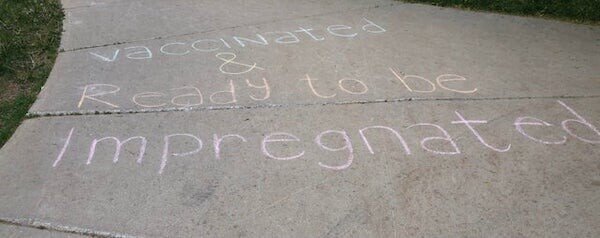 Vaccinated
&
Ready to be
Impregnated